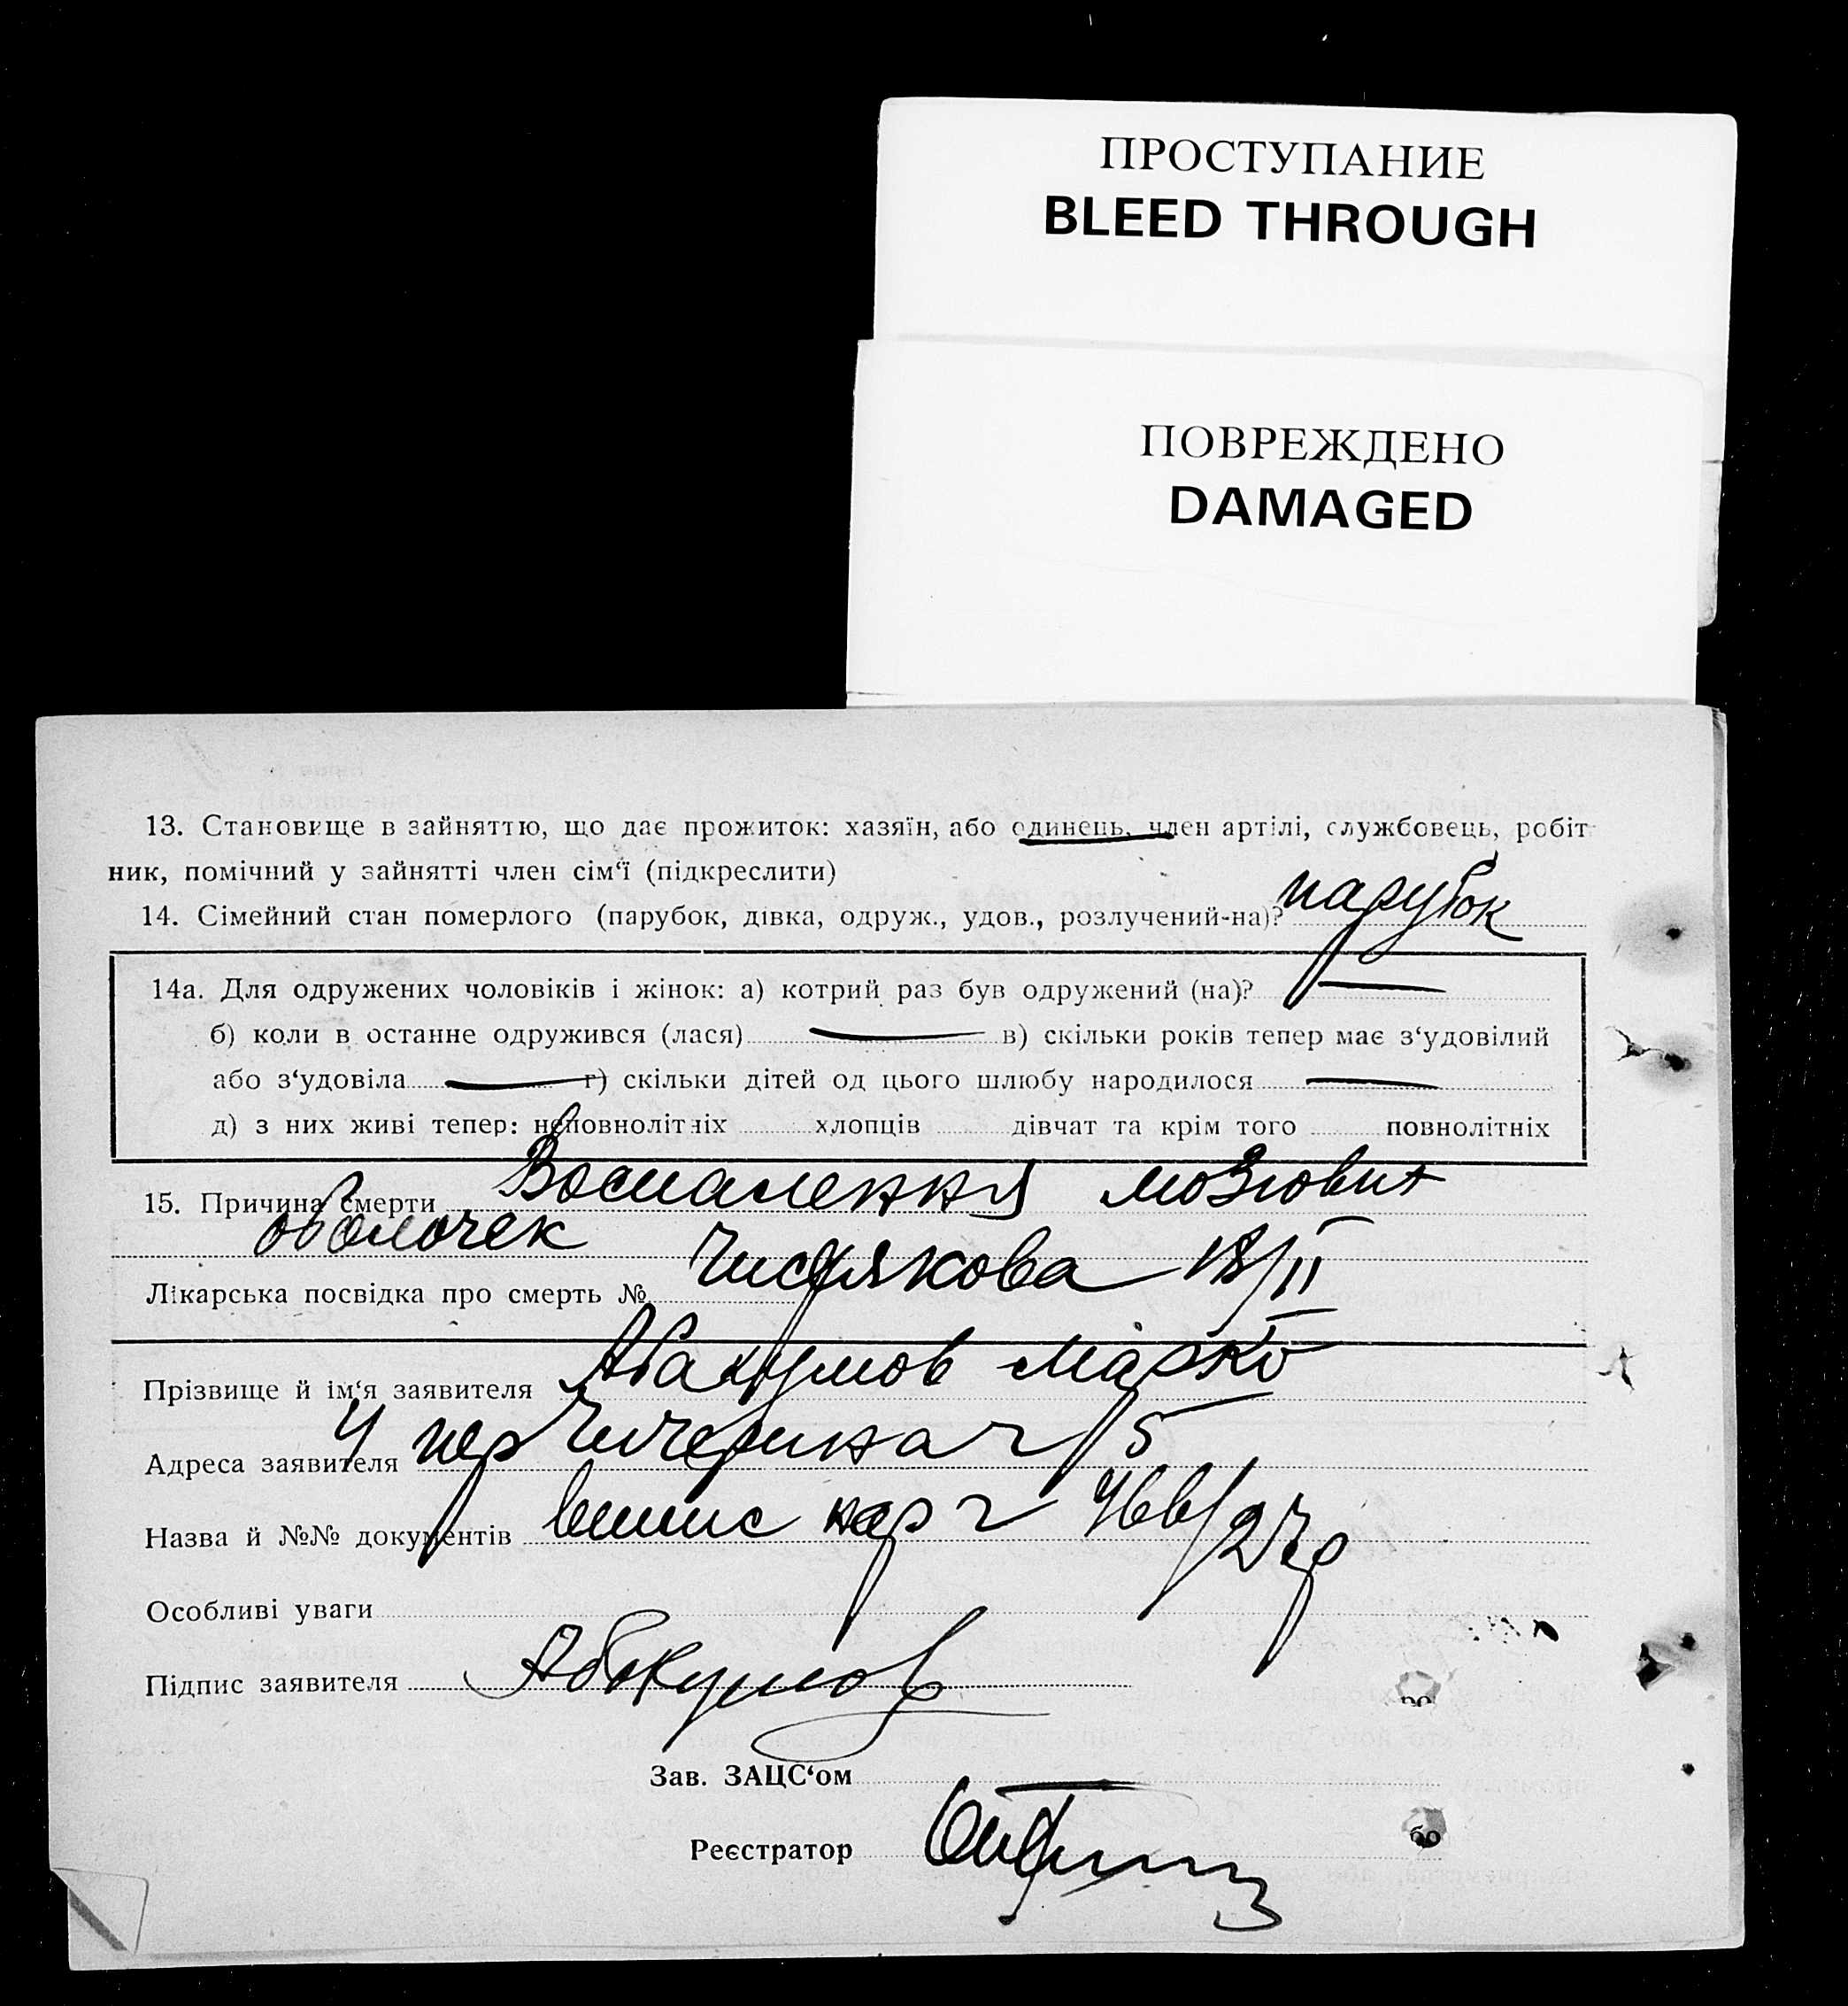 ПРОСТУПАНИЕ
BLEED THROUGH
ПОВРЕЖДЕНО
DAMAGED
13. Становище в зайняттю, що дає прожиток: хазяїн, або одинець, член артілі, службовець, робіт
ник, помічний у зайнятті член сім‘ї (підкреслити)
14. Сімейний стан померлого (парубок, дівка, одруж., удов., розлучений-на)? парубок
14а. Для одружених чоловіків і жінок: а) котрий раз був одружений (на)? —
б) коли в останнє одружився (лася) — в) скільки років тепер має з‘удовілий
або з‘удовіла — г) скільки дітей од цього шлюбу народилося —
д) з них живі тепер: неповнолітніх хлопців дівчат та крім того повнолітніх
15. Причина смерти Воспалення мозгових
оболочек
Лікарська посвідка про смерть № Чистякова 18/II
Прізвище й ім‘я заявителя Абакумов Марко
Адреса заявителя пер Чичерина 5
Назва й №№ документів
Особливі уваги
Підпис заявителя Абакумов
Зав. ЗАЦС‘ом —
Реєстратор